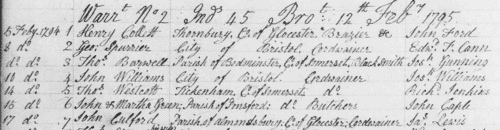 Warrt. No 2 Ind 45 Brot. 12th Feby 1795
5 Feby. 1794 1 Henry Collett Thornbury, C. of Glocester Brazier &c John Ford
8 do 2 Geo. Spurrier City of Bristol Cordwainer Edwd. T. Cann
do do 3 Thos. Barwell Parish of Bedminster, C. of Somerset, Black Smith Jos. Gunning
10 do 4 John Williams City of Bristol Cordwainer Jos. Williams
14 do 5 Thos. Westcott Tickenham, C. of Somerset, do Richd. Jenkins
15 do 6 John & Martha Green; Parish of Butchers John Caple
17 do 7 John Parish of Almondsbury, C. of Glocester; Cordwainer Jas. Lewis